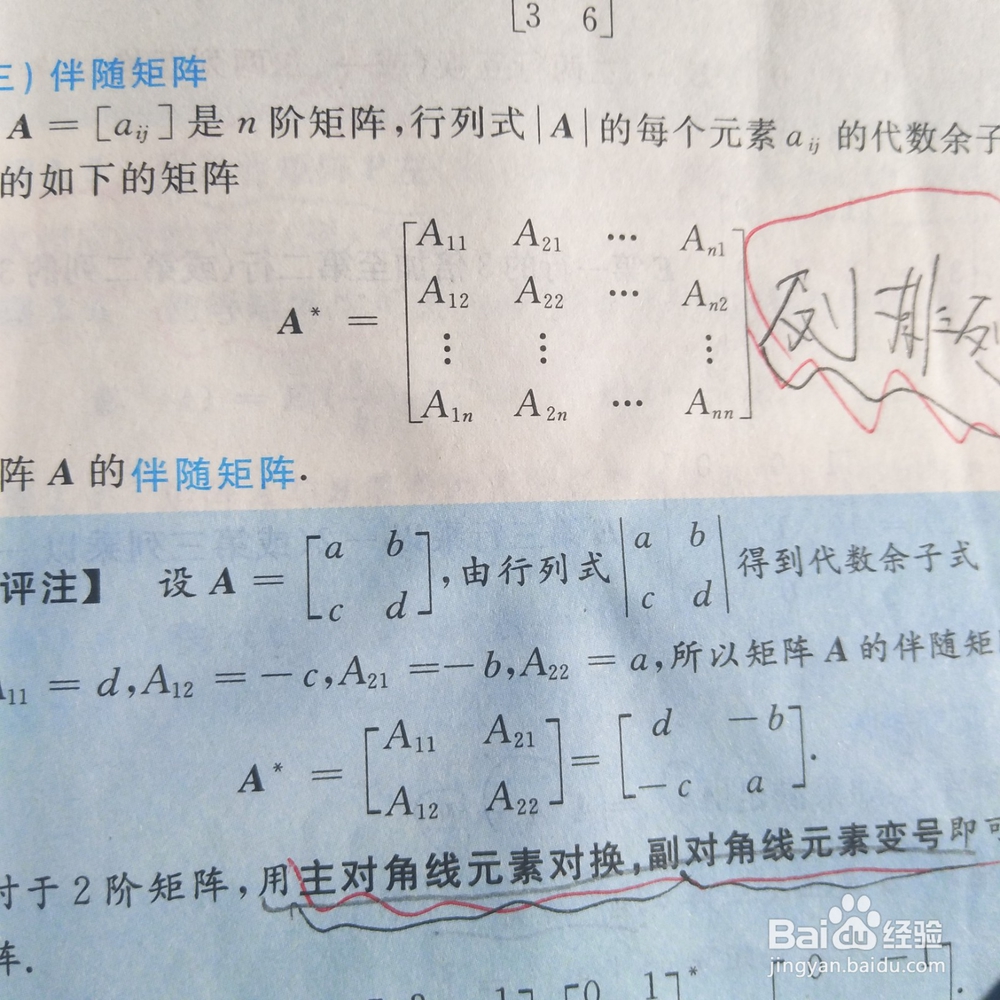 [3 6]
三) 伴随矩阵
A = [aij] 是 n 阶矩阵,行列式 |A| 的每个元素 aij 的代数余子
的如下的矩阵
A11 A21 ⋯ An1
A12 A22 ⋯ An2
A* =
⋮ ⋮ ⋮
A1n A2n ⋯ Ann
阵 A 的伴随矩阵.
评注】 设 A = [a b; c d], 由行列式 |a b; c d| 得到代数余子式
A11 = d, A12 = -c, A21 = -b, A22 = a, 所以矩阵 A 的伴随矩
A* = [A11 A21; A12 A22] = [d -b; -c a].
对于 2 阶矩阵, 用主对角线元素对换, 副对角线元素变号即可
阵.
0 1]*
Baidu 经验
jingyan.baidu.com